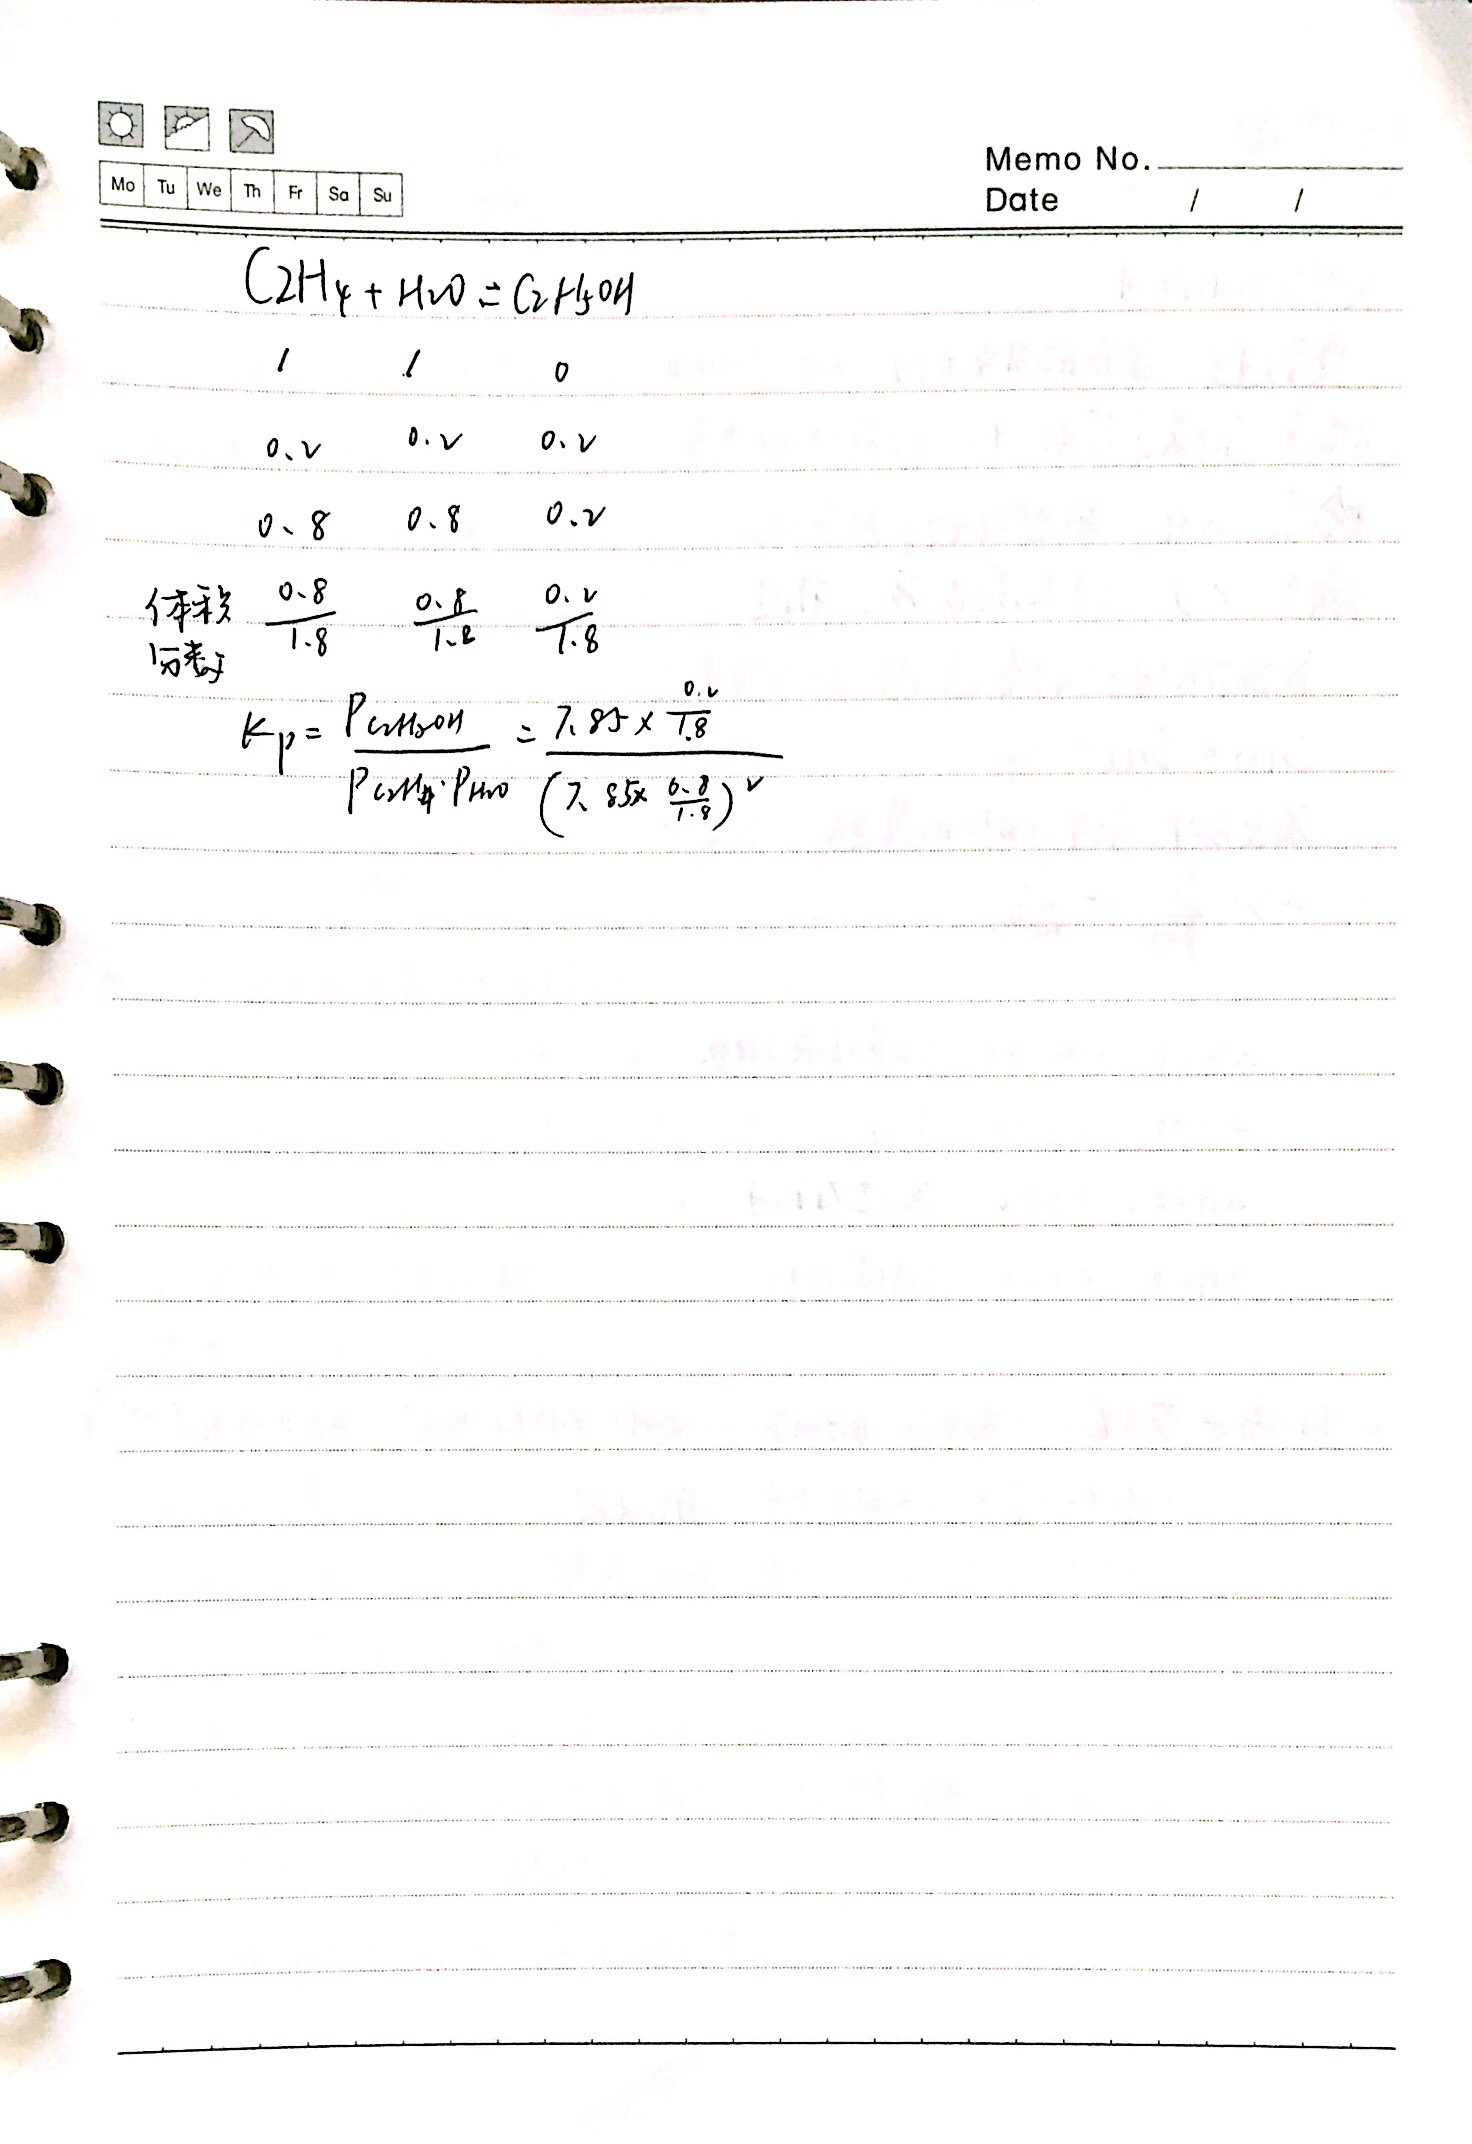 Mo Tu We Th Fr Sa Su
Memo No.
Date / /
C2H4 + H2O = C2H5OH
1 1 0
0.2 0.2 0.2
0.8 0.8 0.2
体积分数 0.8/1.8 0.8/1.8 0.2/1.8
Kp = PC2H5OH / PC2H4·PH2O = 7.85 × 0.2/1.8 / (7.85× 0.8/1.8)²